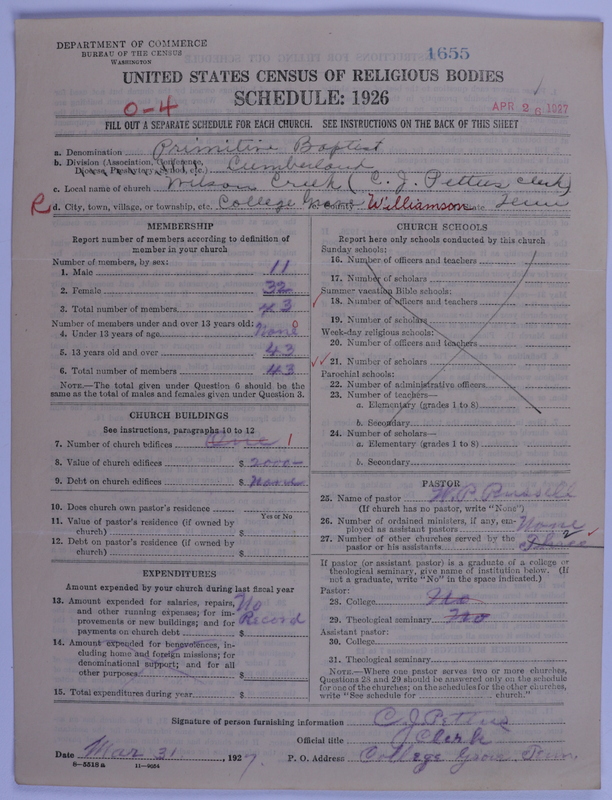 DEPARTMENT OF COMMERCE
BUREAU OF THE CENSUS
WASHINGTON
1655
UNITED STATES CENSUS OF RELIGIOUS BODIES
SCHEDULE: 1926
0-4
APR 26 1927
FILL OUT A SEPARATE SCHEDULE FOR EACH CHURCH. SEE INSTRUCTIONS ON THE BACK OF THIS SHEET
a. Denomination Primitive Baptist
b. Division (Association, Conference, Diocese, Presbytery, Synod, etc.) Cumberland
c. Local name of church Wilson Creek (C. J. Pettus clerk)
R d. City, town, village, or township, etc. College Grove County Williamson State Tenn
MEMBERSHIP
Report number of members according to definition of
member in your church
Number of members, by sex:
1. Male 11
2. Female 32
3. Total number of members 43
Number of members under and over 13 years old:
4. Under 13 years of age None 0
5. 13 years old and over 43
6. Total number of members 43
NOTE.—The total given under Question 6 should be the
same as the total of males and females given under Question 3.
CHURCH BUILDINGS
See instructions, paragraphs 10 to 12
7. Number of church edifices One 1
8. Value of church edifices $ 2000
9. Debt on church edifices $ None
10. Does church own pastor's residence
Yes or No
11. Value of pastor's residence (if owned by
church) $
12. Debt on pastor's residence (if owned by
church) $
EXPENDITURES
Amount expended by your church during last fiscal year
13. Amount expended for salaries, repairs, No
and other running expenses; for im- Record
provements or new buildings; and for
payments on church debt $
14. Amount expended for benevolences, in-
cluding home and foreign missions; for
denominational support; and for all
other purposes $
15. Total expenditures during year $
CHURCH SCHOOLS
Report here only schools conducted by this church
Sunday schools:
16. Number of officers and teachers
17. Number of scholars
Summer vacation Bible schools:
18. Number of officers and teachers
19. Number of scholars
Week-day religious schools:
20. Number of officers and teachers
21. Number of scholars
Parochial schools:
22. Number of administrative officers
23. Number of teachers—
a. Elementary (grades 1 to 8)
b. Secondary
24. Number of scholars—
a. Elementary (grades 1 to 8)
b. Secondary
PASTOR
25. Name of pastor W. P. Russell
(If church has no pastor, write "None")
26. Number of ordained ministers, if any, em-
ployed as assistant pastors None
27. Number of other churches served by the
pastor or his assistants Three 2
If pastor (or assistant pastor) is a graduate of a college or
theological seminary, give name of institution below. (If
not a graduate, write "No" in the space indicated.)
Pastor:
28. College No
29. Theological seminary No
Assistant pastor:
30. College
31. Theological seminary
NOTE.—Where one pastor serves two or more churches,
Questions 28 and 29 should be answered only on the schedule
for one of the churches; on the schedules for the other churches,
write "See schedule for church."
Signature of person furnishing information C J Pettus
Official title Clerk
Date Mar 31, 1927. P. O. Address College Grove Tenn.
8-5518a 11-9054